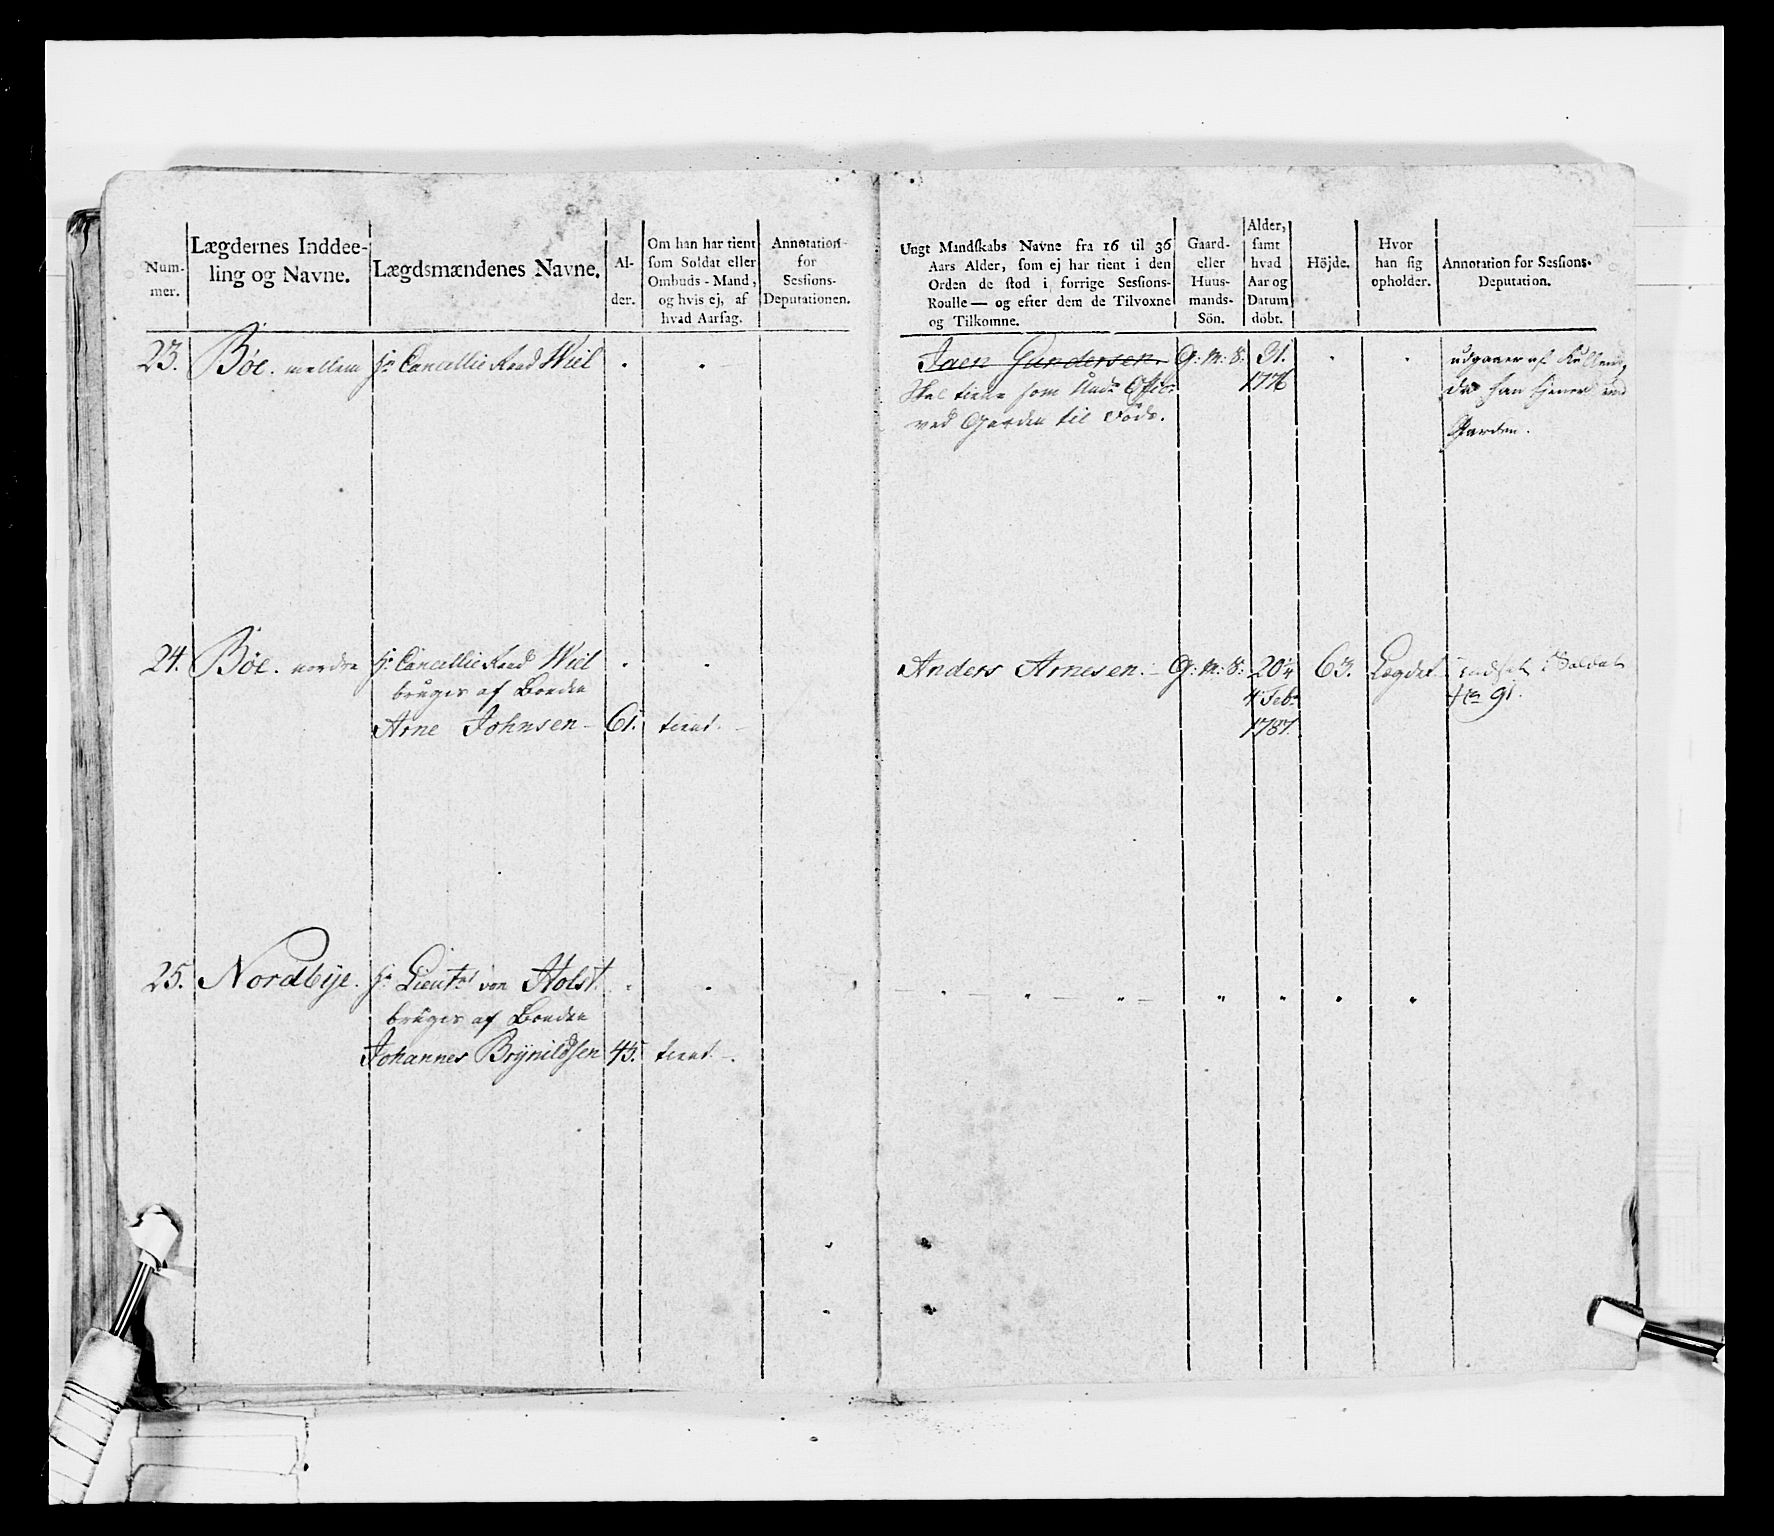 Num-
mer.
Lægdernes Inddee-
ling og Navne.
Lægdsmændenes Navne.
Al-
der.
Om han har tient
som Soldat eller
Ombuds-Mand,
og hvis ej, af
hvad Aarsag.
Annotation
for
Sessions-
Deputationen.
Ungt Mandskabs Navne fra 16 til 36
Aars Alder, som ej har tient i den
Orden de stod i forrige Sessions-
Roulle — og efter dem de Tilvoxne
og Tilkomne.
Gaard-
eller
Huus-
mands-
Sön.
Alder,
samt
hvad
Aar og
Datum
döbt.
Höjde.
Hvor
han sig
opholder.
Annotation for Sessions-
Deputation.
23. Bøe. mellem Hr Cancellie Raad Wiel
Jaen Gundersen. G: M: S: 31.
1776
Skal tiene som Undr Offic:
ved Garden til Fods.
udgaaer af Rullen,
da han tjener ved
Garden.
24. Bøe. nordre Hr Cancellie Raad Wiel
bruges af Bonden
Arne Johnsen - 61. tient.
Anders Arnesen. - G: M: S: 20¼ 63. Lægdet. indsat Soldat
4 Febr No 91.
1787.
25. Nordbye. Hr Lieutnt von Holst.
bruges af Bonden
Johannes Brynildsen 45. tient -.